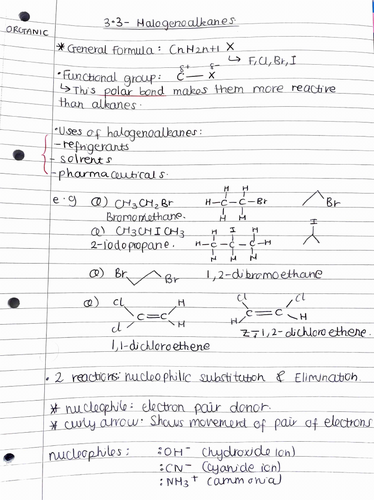 3.3- Halogenoalkanes
ORGANIC
* General Formula: CnH2n+1 X
↳ F, Cl, Br, I
• Functional group: Cδ+ — Xδ-
↳ This polar bond makes them more reactive
than alkanes.
• Uses of halogenoalkanes:
- refrigerants
- solvents
- pharmaceuticals.
e.g Q) CH3CH2Br
Bromomethane.
H H
H-C-C-Br
H H
Br
Q) CH3CHICH3
2-iodopropane.
H I H
H-C-C-C-H
H H H
I
Q) Br Br 1,2-dibromoethane
Q) Cl H
C=C
Cl H
1,1-dichloroethene
Cl Cl
C=C
H H
Z-1,2-dichloroethene.
• 2 reactions: nucleophilic substitution & Elimination.
* nucleophile: electron pair donor.
* curly arrow: Shows movement of pair of electrons
nucleophiles: :OH⁻ (hydroxide ion)
:CN⁻ (cyanide ion)
:NH3⁺ (ammonia)